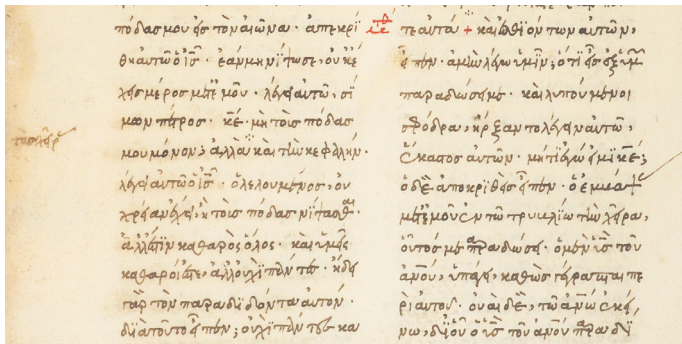 πόδας μου εἰς τὸν αἰῶνα· ἀπεκρί
θη αὐτῶ ὁ ι̅ς̅· ἐὰν μὴ νίψωσε, οὐκ ἔ
χεις μέρος μετ' ἐμοῦ· λέγει αὐτῶ, σί
μων πέτρος· κ̅ε̅· μὴ τοὺς πόδας
μου μόνον· ἀλλὰ καὶ τὴν κεφαλήν·
λέγει αὐτῶ ὁ ι̅ς̅· ὁ λελουμένος, οὐ
χρείαν ἔχει, ἢ τοὺς πόδας νίψασθαι
ἀλλ' ἔστιν καθαρὸς ὅλος· καὶ ὑμεῖς
καθαροί ἐστε, ἀλλ' οὐχὶ πάντες· ἤδει
γὰρ τὸν παραδιδόντα αὐτόν·
διὰ τοῦτο εἶπεν; οὐχὶ πάντες κα
τὰς χεῖρ
τε αὐτά + καὶ ἐσθιόντων αὐτῶν,
εἶπεν· ἀμὴν λέγω ὑμῖν; ὅτι εἷς ἐξ ὑμ
παραδώσει με· καὶ λυπούμενοι
σφόδρα, ἤρξαντο λέγειν αὐτῶ,
ἕκαστος αὐτῶν· μήτι ἐγώ εἰμι κ̅ε̅;
ὁ δὲ ἀποκριθεὶς εἶπεν· ὁ ἐμβάψ
μετ' ἐμοῦ ἐν τῶ τρυβλίω τὴν χεῖρα,
οὗτός με παραδώσει· ὁ μὲν υ̅ς̅ τοῦ
α̅ν̅ο̅υ̅, ὑπάγει, καθὼς γέγραπται πε
ρὶ αὐτοῦ· οὐαὶ δὲ, τῶ α̅ν̅ω̅ ἐκεί
νω, δι' οὗ ὁ υ̅ς̅ τοῦ α̅ν̅ο̅υ̅ παραδί